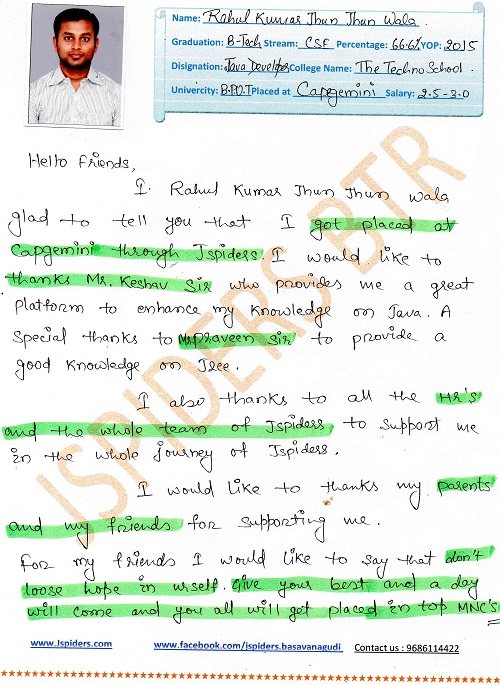 Name: Rahul Kumar Jhun Jhun Wala
Graduation: B-Tech Stream: CSE Percentage: 66.6% YOP: 2015
Disignation: Java Developer College Name: The Techno School
Univercity: B.P.U.T Placed at Capgemini Salary: 2.5-3.0
Hello Friends,
I. Rahul Kumar Jhun Jhun Wala
glad to tell you that I got placed at
Capgemini through Jspiders. I would like to
thanks Mr. Keshav Sir who provides me a great
Platform to enhance my knowledge on Java. A
Special thanks to Mr Praveen Sir to provide a
good knowledge on J2ee.
I also thanks to all the Hr's
and the whole team of Jspiders, to support me
in the whole journey of Jspiders.
I would like to thanks my parents
and my friends for supporting me.
For my friends I would like to say that don't
loose hope in urself. Give your best and a day
will come and you all will get placed in top MNC's
JSPIDERS BTR
www.Jspiders.com www.facebook.com/jspiders.basavanagudi Contact us : 9686114422